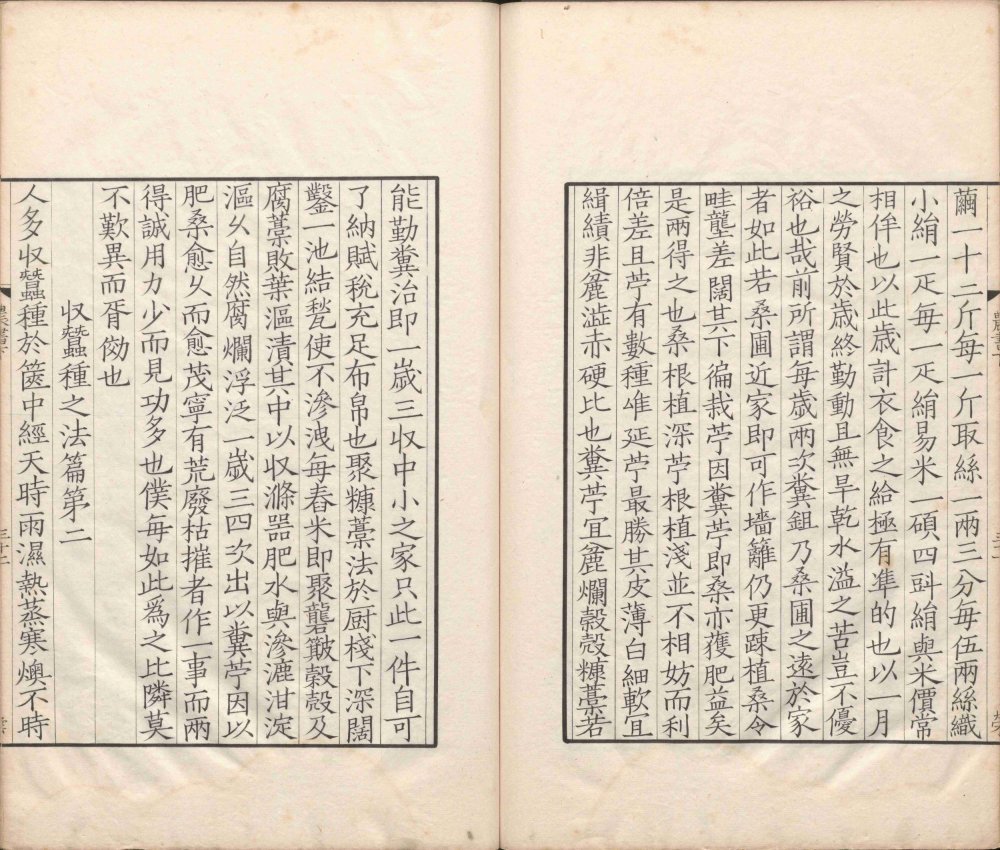 繭一十二斤每一斤取絲一兩三分每伍兩絲織
小絹一疋每一疋絹易米一碩四㪷絹與米價常
相侔也以此歲計衣食之給極有準的也以一月
之勞賢於歲終勤動且無旱乾水溢之苦豈不優
裕也哉前所謂每歲兩次糞鉏乃桑圃之遠於家
者如此若桑圃近家即可作墻籬仍更踈植桑令
畦壟差闊其下徧栽苧因糞苧即桑亦獲肥益矣
是兩得之也桑根植深苧根植淺並不相妨而利
倍差且苧有數種唯延苧最勝其皮薄白細軟宜
緝績非麄澁赤硬比也糞苧宜麄爛穀殻糠藁若
能勤糞治即一歲三収中小之家只此一件自可
了納賦稅充足布帛也聚糠藁法於厨棧下深闊
鑿一池結甃使不滲洩每舂米即聚礱簸穀殻及
腐藁敗葉漚漬其中以収滌器肥水與滲漉泔淀
漚乆自然腐爛浮泛一歲三四次出以糞苧因以
肥桑愈乆而愈茂寧有荒廢枯摧者作一事而兩
得誠用力少而見功多也僕每如此爲之比隣莫
不歎異而胥傚也
収蠶種之法篇第二
人多収蠶種於篋中經天時雨濕熱蒸寒燠不時